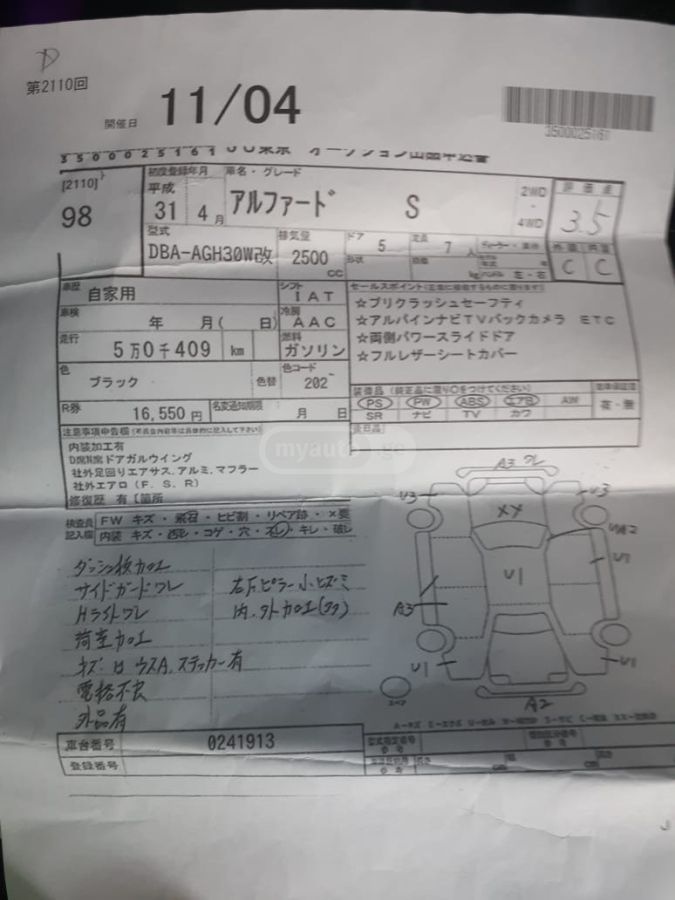 第2110回
開催日 11/04
3500025161
3500025161 JU東京 オークション出品申込書
[2110]
98
初度登録年月
平成
31 4月
車名・グレード
アルファード S
2WD
・
4WD
評価点
3.5
型式
DBA-AGH30W改
排気量
2500
CC
ドア
5
定員
7人
形状
外装 内装
C C
車歴
自家用
シフト
IAT
車検
年 月( 日)
冷房
AAC
走行
5万0千409 km
燃料
ガソリン
色
ブラック
色替
色コード
202
R券
16,550円
名変通知期限
月 日
セールスポイント
☆プリクラッシュセーフティ
☆アルパインナビTVバックカメラ ETC
☆両側パワースライドドア
☆フルレザーシートカバー
装備品 (純正品に限り○をつけてください)
PS PW ABS エアB AW
SR ナビ TV カワ
有・無
後日品
注意事項申告欄
内装加工有
D席N席ドアガルウイング
社外足回りエアサス,アルミ,マフラー
社外エアロ(F.S.R)
修復歴 有 [箇所
検査員
記入欄
FW キズ・飛石・ヒビ割・リペア跡・×要
内装 キズ・汚レ・コゲ・穴・スレ・キレ・破レ
ダッシュ板加工
サイドガードワレ
Hライトワレ
荷室加工
キズ・凹 ウスA,ステッカー有
電格不良
外品有
右Fピラー小ヒズミ
内・外加工(タタ)
A3 ワレ
U3
U3
XY
UA2
U1
U1
A3
U1
U1
A2
スペア
車台番号
0241913
型式指定番号
類別区分番号
登録番号
myauto.ge